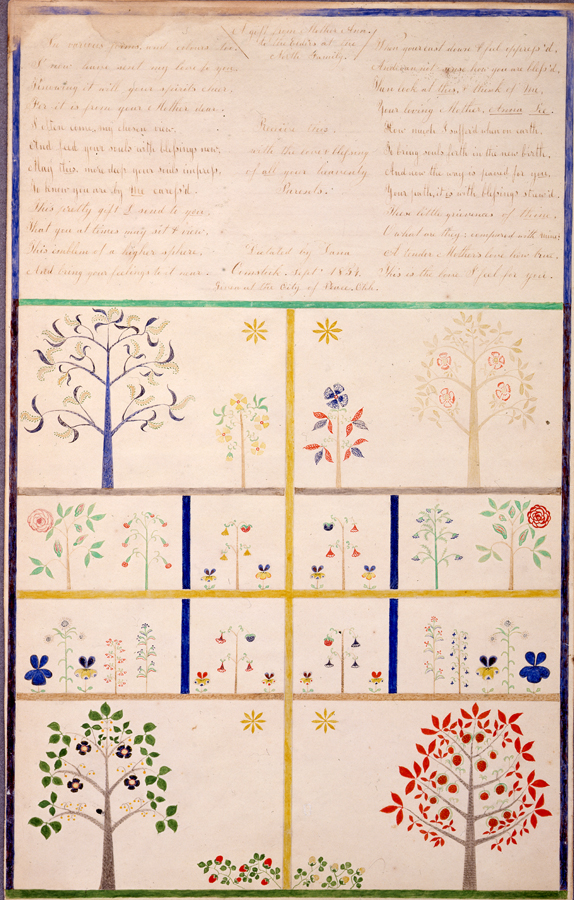 A gift from Mother Ann.
To the Elders at the
North Family.
In various forms, and colours too.
I now have sent my love to you.
it will your spirits cheer
For it is from your Mother dear.
I often come, my chosen
And feed your souls with blessings new.
May this, more deep your souls impress,
To know you are by me caress'd.
This pretty gift I send to you,
That you at times may sit & view.
This emblem of a higher sphere,
And bring your feelings to it near.
Receive this,
with the love & blessing
of all your heavenly
Parents.
Dictated by Dana
Comstock. Sept. 1854.
Given at the City of Peace. Chh.
When your cast down & feel oppress'd.
And cannot know how you are bless'd,
Then look at this, & think of Me,
Your loving Mother, Anna Lee.
How much I suffer'd when on earth,
To bring souls forth in the new birth.
And now the way is paved for you.
Your path, it is with blessings strew'd.
Those little grievances of thine,
O what are they, compared with mine;
A tender Mother's love how true,
This is the love I feel for you.